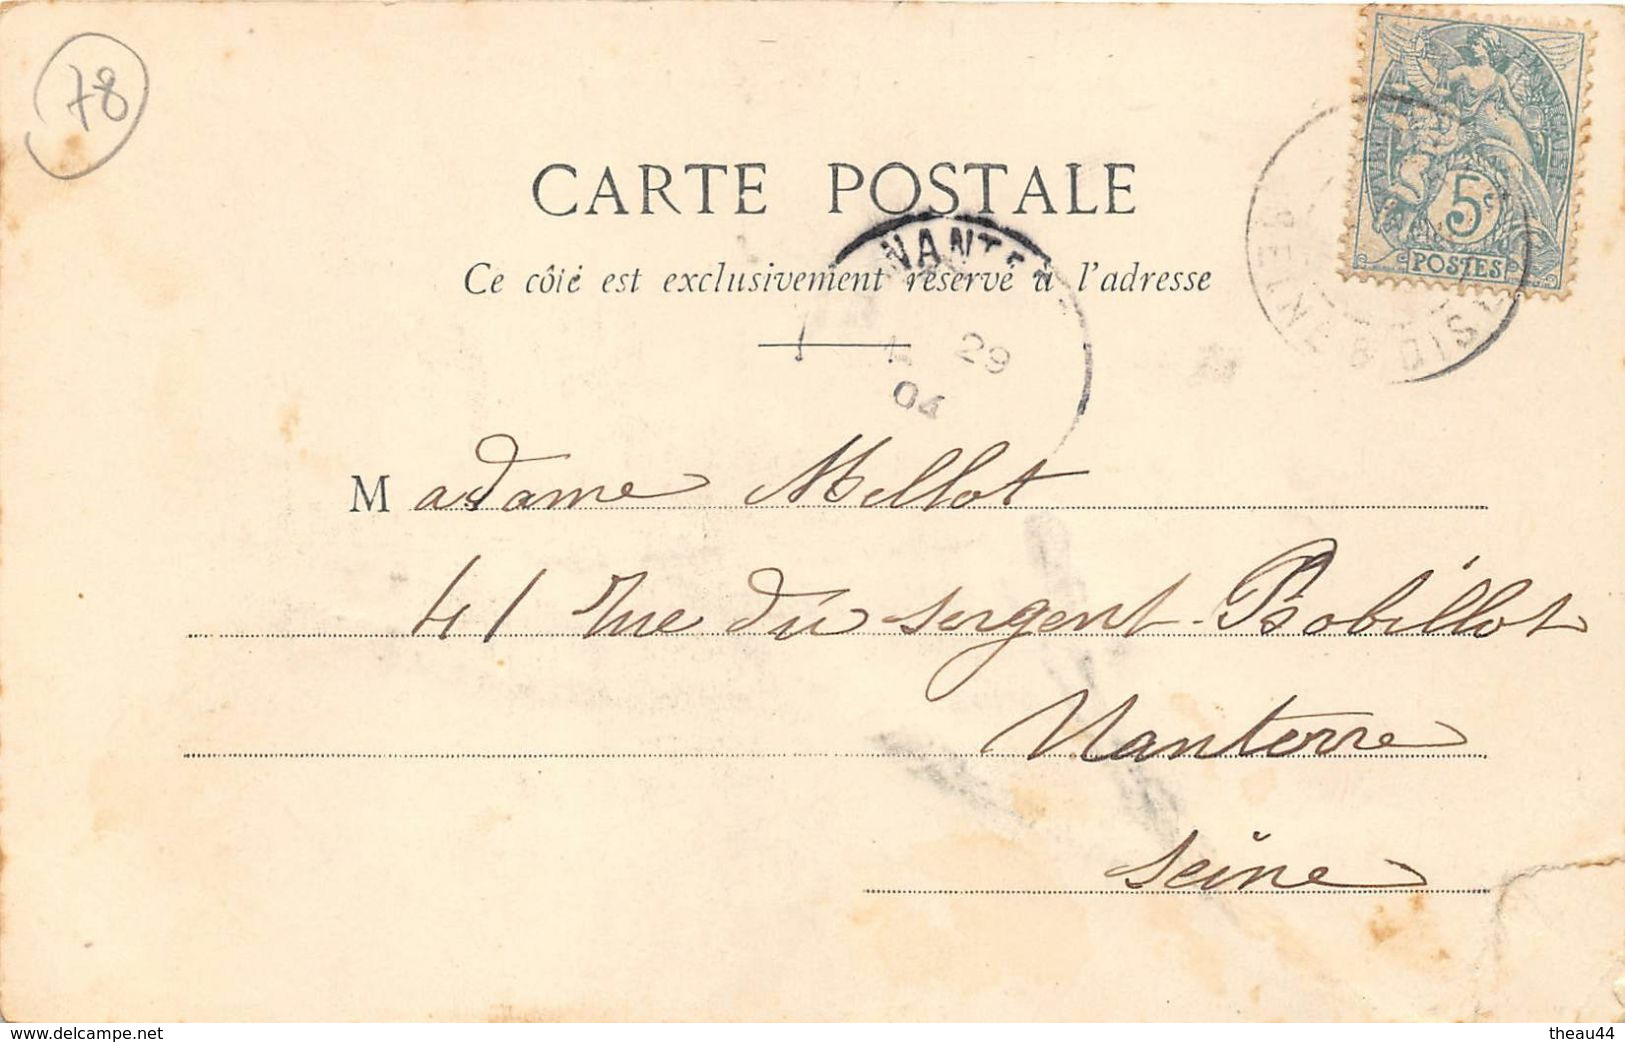 78
RÉPUBLIQUE FRANÇAISE
5c
POSTES
SEINE & OISE
CARTE POSTALE
Ce côté est exclusivement réservé à l'adresse
NANTE
29
04
Madame Mellot
41 rue du sergent-Bobillot
Nanterre
Seine
www.delcampe.net
theau44